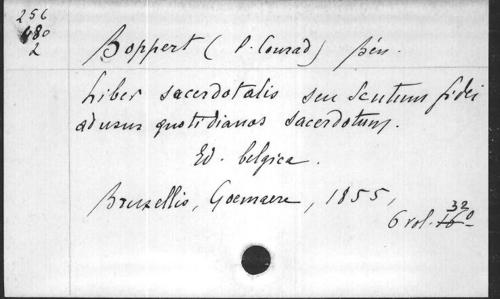 256
480
2
Boppert (P. Conrad) Bén.
Liber sacerdotalis seu Scutum fidei
ad usus quotidianos sacerdotum.
Ed. belgica.
Bruxellis, Goemaere, 1855,
6 vol. 16° 32°